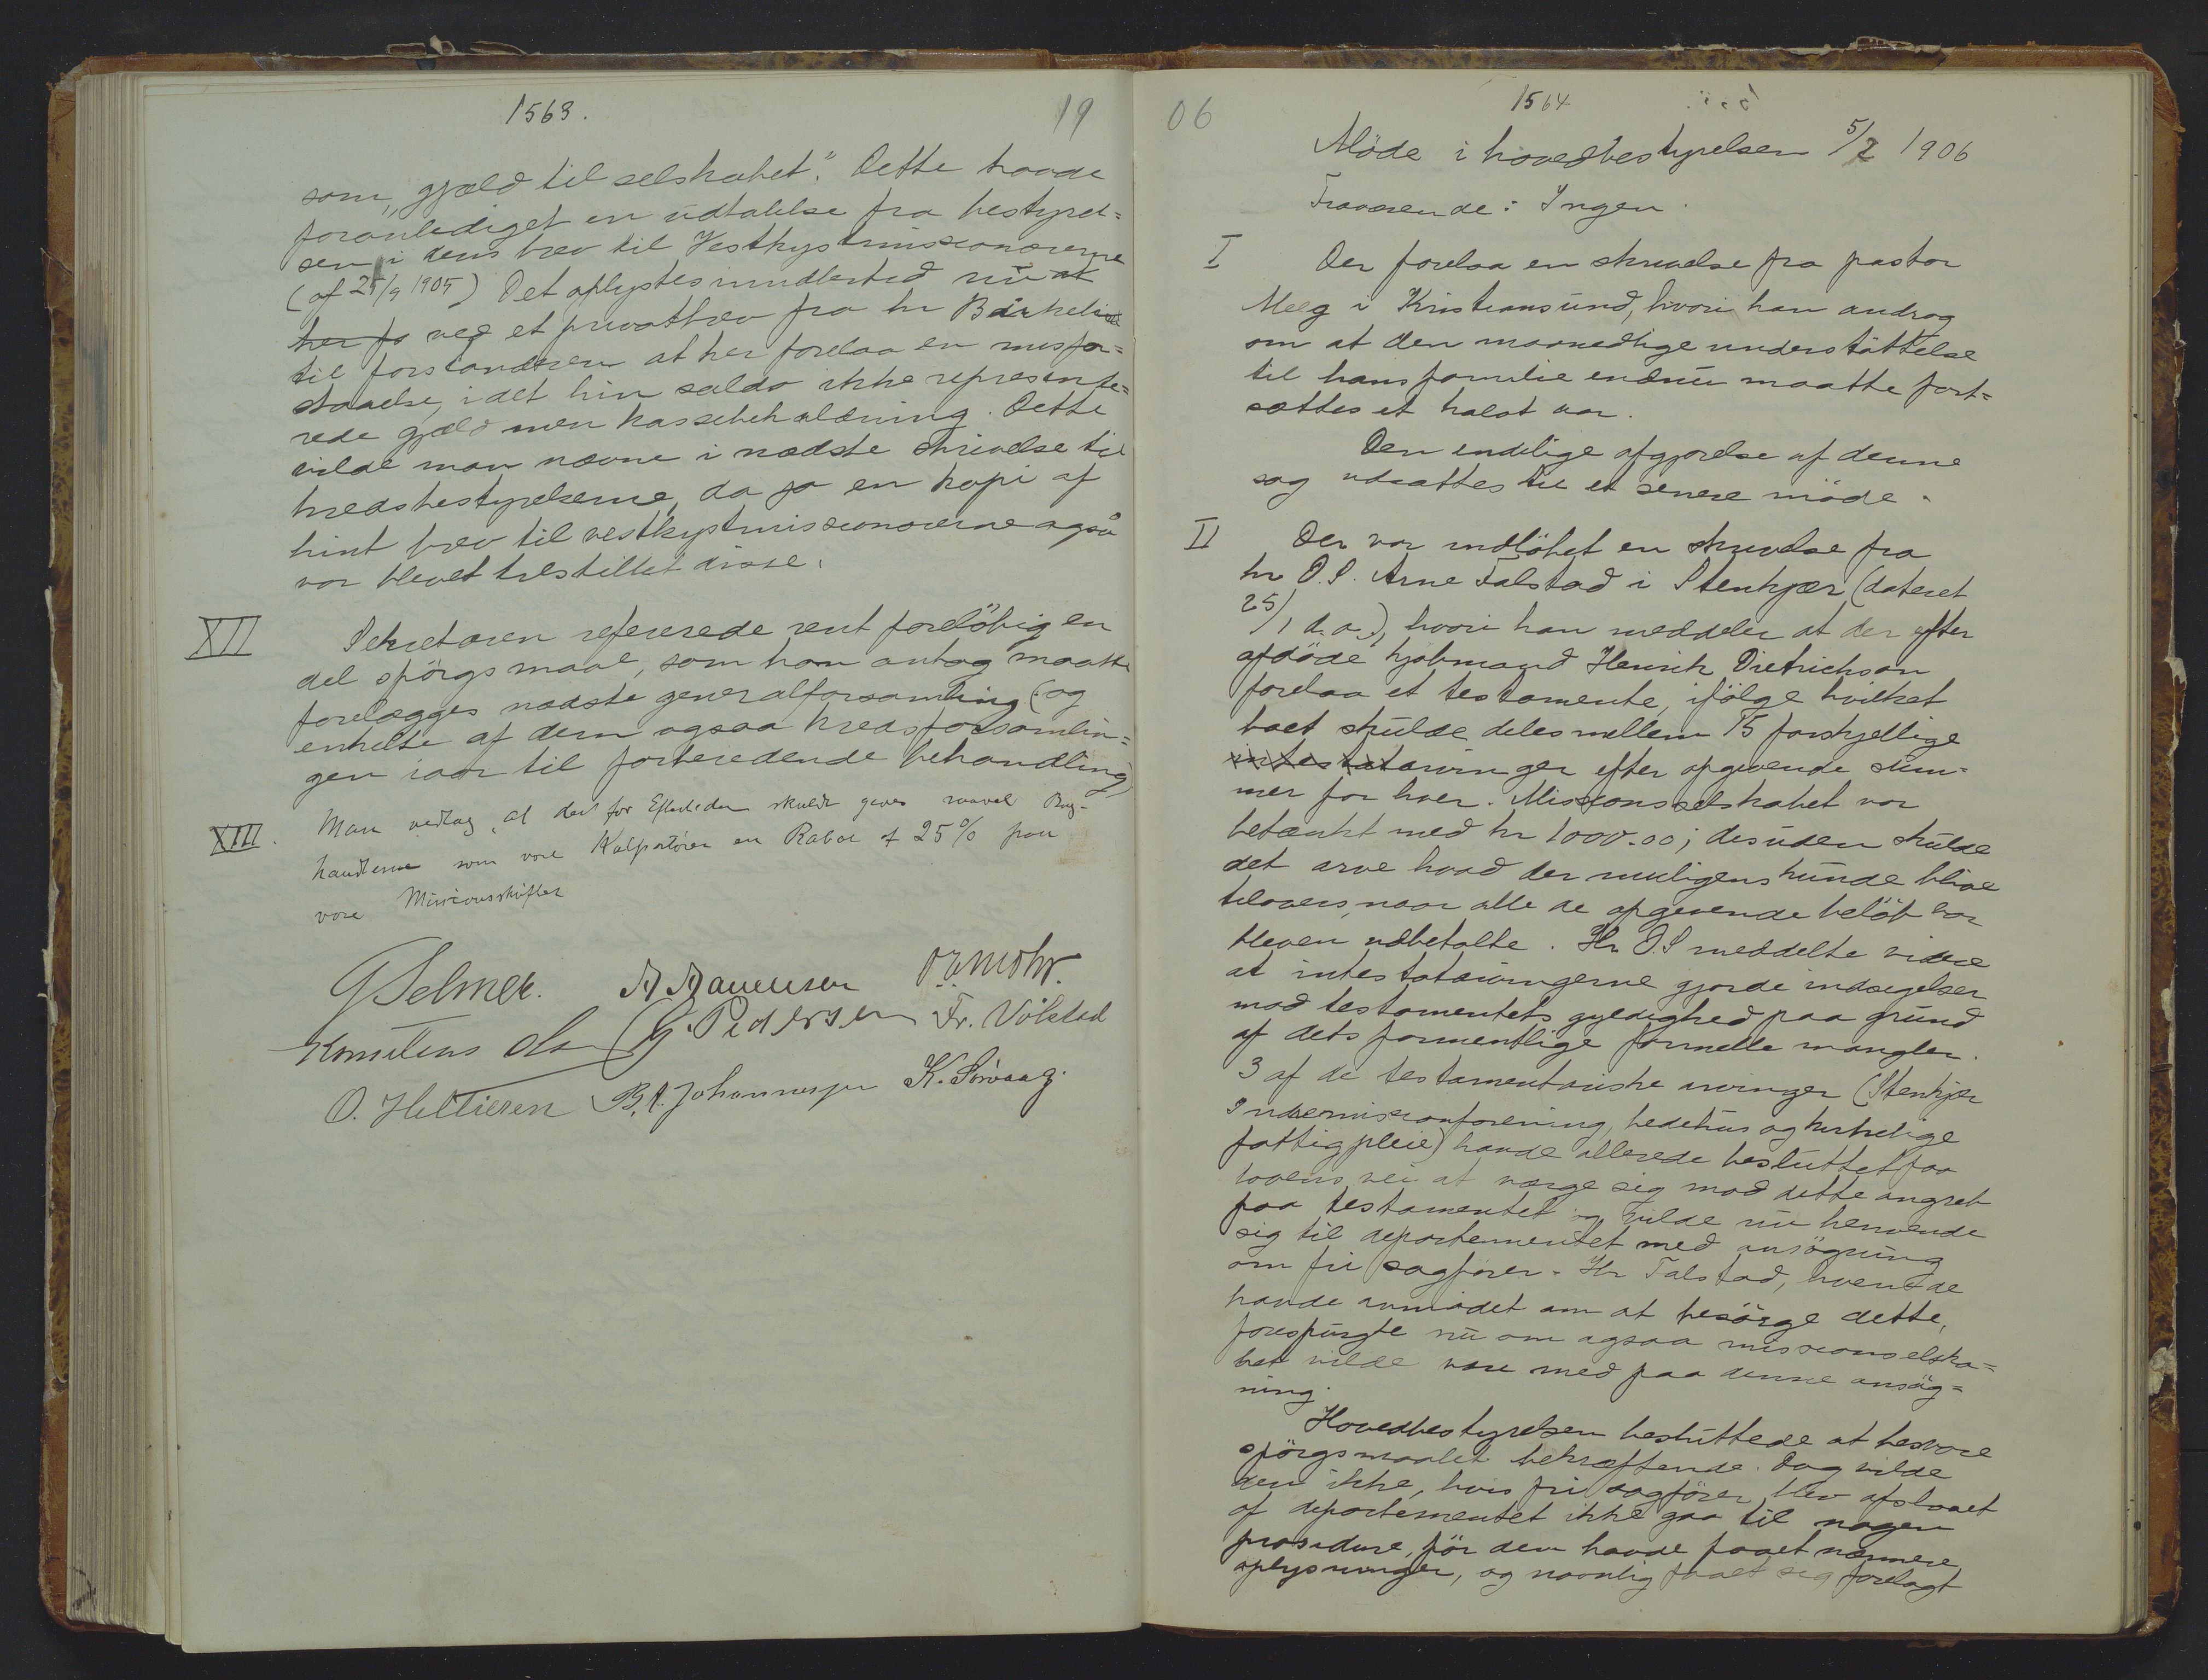 1563.
19
som „gjæld til selskabet". Dette havde
foranlediget en udtalelse fra bestyrel=
sen i dens brev til Vestkystmissionærerne
(af 25/9 1905) Det oplystes imidlertid nu at
her fo ved et privatbrev fra hr Birkeli
til forstanderen at her forelaa en misfor=
staaelse, idet hin saldo ikke represente=
rede gjæld men kassebeholdning. Dette
vilde man nævne i nædste skrivelse til
kredsbestyrelserne, da jo en kopi af
hint brev til vestkystmissionærerne også
var blevet tilstillet disse.
XII Sekretæren refererede rent foreløbig en
del spörgsmaal, som han antog maatte
forelægges nædste generalforsamling (og
enkelte af dem ogsaa kredsforsamlin=
gen iaar til forberedende behandling)
XIII. Man vedtog, at der for Efterleden skulde gives saavel Bog-
handlerne som vore Kolportörer en Rabat af 25% paa
vore Missionsskrifter
G Selmer. O. Z. Mohr.
G. Pedersen Fr. Völstad
O. Heltiesen B. A. Johannesen K. Sörvaag.
06
1564
Möde i hovedbestyrelsen 5/2 1906
Fraværende: Ingen.
I Der forelaa en skrivelse fra pastor
Meeg i Kristiansund, hvori han androg
om at den maanedlige understöttelse
til hans familie endnu maatte fort=
sættes et halvt aar.
Den endelige afgjørelse af denne
sag udsattes til et senere möde.
II Der var indlöbet en skrivelse fra
hr O.S. Arne Falstad i Stenkjær (dateret
25/1 d.a.), hvori han meddeler at der efter
afdöde kjøbmand Henrik Dietrichson
forelaa et testamente, ifölge hvilket
boet skulde deles mellem 15 forskjellige
intestatarvinger efter opgivende sum=
mer for hver. Missionsselskabet var
betænkt med kr 1000.00; desuden skulde
det arve hvad der muligens kunde blive
tilovers, naar alle de opgivende beløb var
bleven udbetalte. Hr O.S meddelte videre
at intestatarvingerne gjorde indsigelser
mod testamentets gyldighed paa grund
af dets formentlige formelle mangler.
3 af de testamentariske arvinger (Stenkjær
Indremissionsforening, bedehus og kirkelige
fattigpleie) havde allerede besluttet paa
lovens vei at værge sig mod dette angreb
paa testamentet og vilde nu henvende
sig til departementet med ansögning
om fri sagförer. Hr Falstad, hvem de
havde anmodet om at besörge dette,
forespurgte nu om ogsaa missionselska=
bet vilde være med paa denne ansøg=
ning.
Hovedbestyrelsen besluttede at besvare
spörgsmaalet bekræftende. Dog vilde
den ikke, hvis fri sagförer blev afslaaet
af departementet ikke gaa til nogen
prosedure, för den havde faaet nærmere
oplysninger, og navnlig faaet sig forelagt